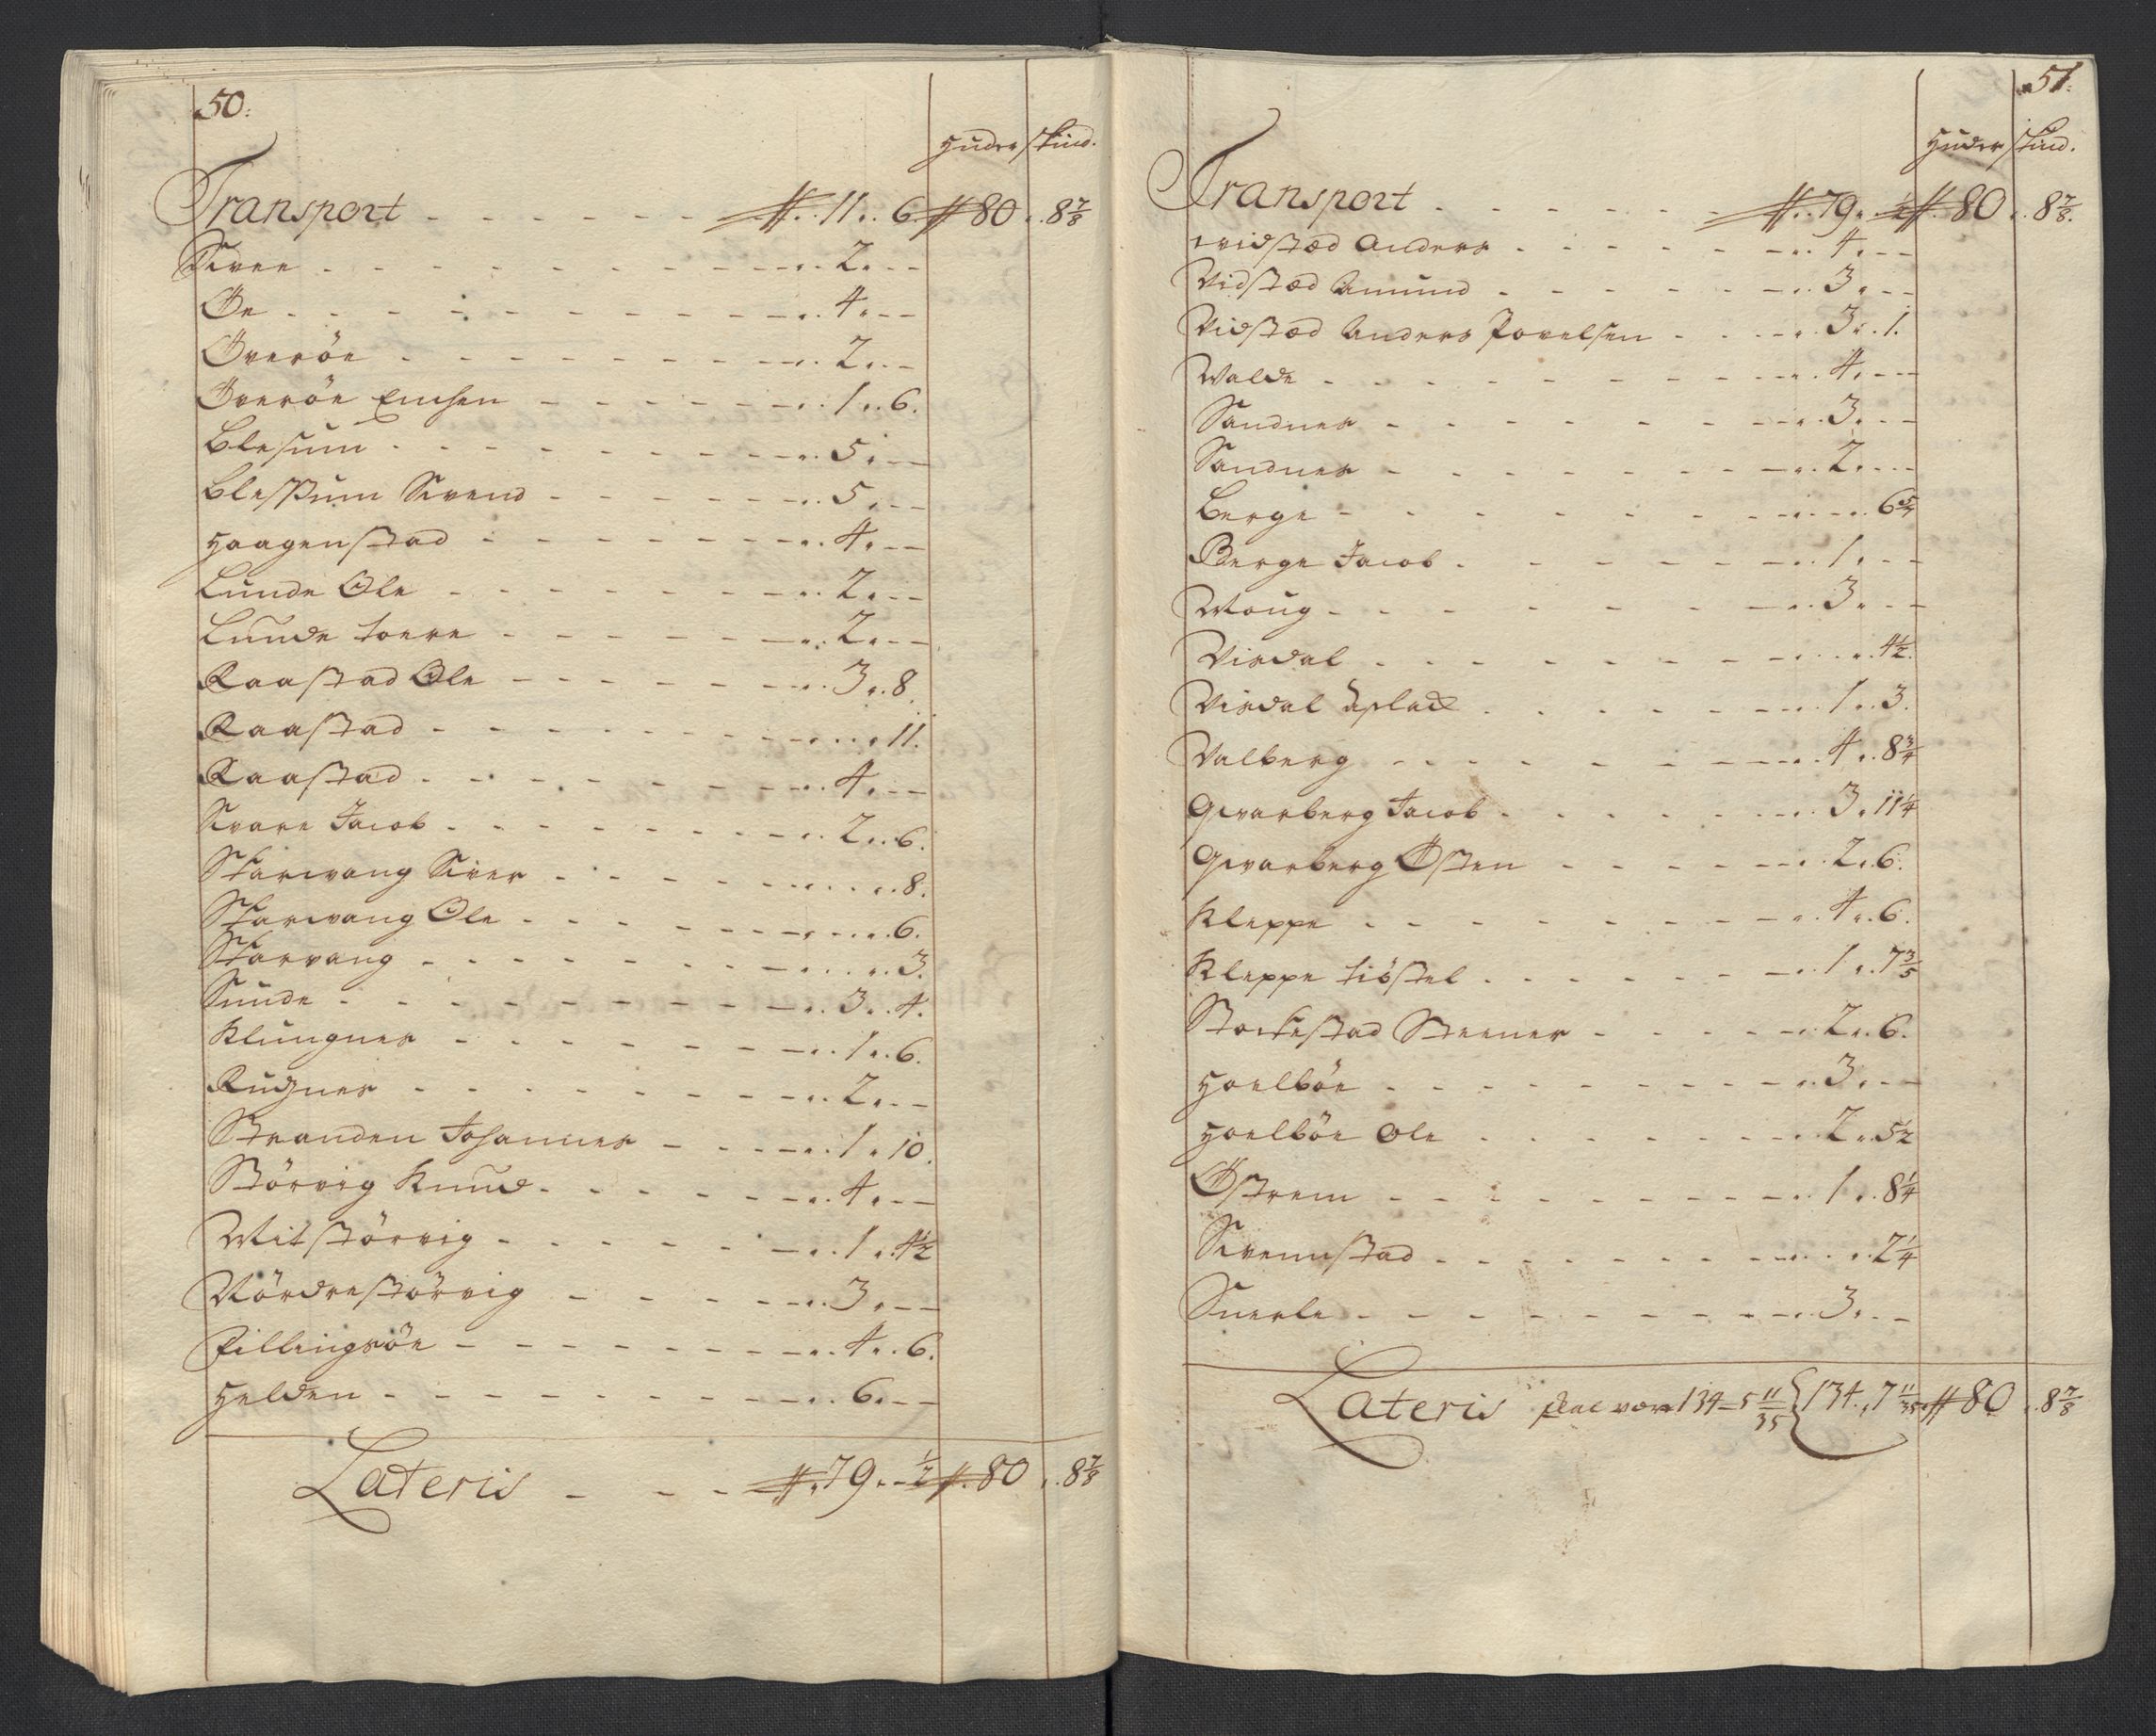 50.
Huder Skind.
Transport - - - - - - # .. 11 .. 6 # 80 .. 8 7/8
Siven - - - - - - - - .. 2 .. --
Øe - - - - - - - - .. 4 .. --
Øverøe - - - - - - - .. 2 .. --
Øverøe Einsen - - - - - .. 1 .. 6.
Blesum - - - - - - - .. 5 .. --
Blessum Sivend - - - - - .. 5 .. --
Haagenstad - - - - - - .. 4 .. --
Lunde Ole - - - - - - .. 2 .. --
Lunde Toere - - - - - - .. 2 .. --
Raastad Ole - - - - - - .. 3 .. 8.
Raastad - - - - - - - .. 11.
Raastad - - - - - - - .. 4 .. --
Svare Jacob - - - - - - .. 2 .. 6.
Skarvang Siver - - - - - .. 8.
Skarvang Ole - - - - - - .. 6.
Skarvang - - - - - - - .. 3.
Sunde - - - - - - - - .. 3 .. 4.
Klungnes - - - - - - - .. 1 .. 6.
Rudznes - - - - - - - .. 2 .. --
Stranden Johannes - - - - .. 1 .. 10.
Störvig Knud - - - - - - .. 4 .. --
Mitstörvig - - - - - - .. 1 .. 4 1/2
Nördrestörvig - - - - - .. 3 .. --
Fillingsöe - - - - - - .. 4 .. 6.
Helden - - - - - - - - .. 6 .. --
Lateris - - - # .. 79 .. - 1/2 # 80 .. 8 7/8
51.
Huder Skind.
Transport - - - - - - # .. 79 .. 1/2 # 80 .. 8 7/8.
Vidstæd Anders - - - - - .. 4 .. --
Vidstæd Amund - - - - - .. 3 .. --
Vidstæd Anders Povelsen - - - .. 3 .. 1.
Walde - - - - - - - - .. 4 .. --
Sandnes - - - - - - - .. 3 .. --
Sandnes - - - - - - - .. 2 .. --
Berge - - - - - - - - .. 6 5/7
Berge Jacob - - - - - - .. 1 .. --
Moug - - - - - - - - .. 3 .. --
Visdal - - - - - - - .. 4 1/2.
Visdal - - - - - .. 1 .. 3.
Valberg - - - - - - - .. 4 .. 8 3/4
Qvarberg Jacob - - - - - .. 3 .. 11 1/4
Qvarberg Østen - - - - - .. 2 .. 6.
Kleppe - - - - - - - .. 4 .. 6.
Kleppe Tiöstel - - - - - .. 1 .. 7 3/5
Stockestad Steener - - - - .. 2 .. 6.
Hoelböe - - - - - - - .. 3 .. --
Hoelböe Ole - - - - - - .. 2 .. 5 1/2
Østrem - - - - - - - .. 1 .. 8 1/4
Svennstad - - - - - - .. 2 1/4
Snerle - - - - - - - - .. 3 .. --
Lateris skal være 134 - 5 11/35 { 134 .. 7 11/35 # 80 .. 8 7/8